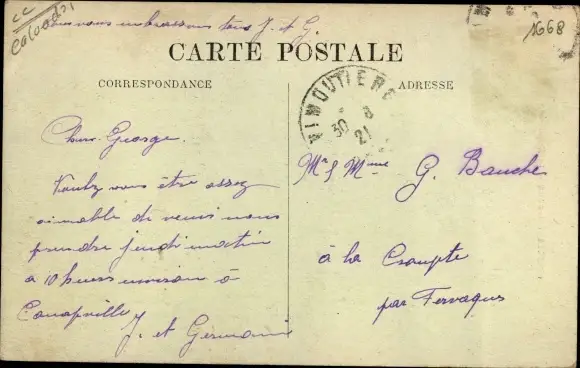 cc
Calvados
nous vous embrassons tous J. et G.
1668
CARTE POSTALE
CORRESPONDANCE
ADRESSE
VIMOUTIERS
30 3
21
Cher George.
Voulez vous être assez
aimable de venir nous
prendre jeudi matin
a 10 heures environ à
Canapville
J. et Germaine
Mr & Mme G. Bauche
à la Croupte
par Fervaques